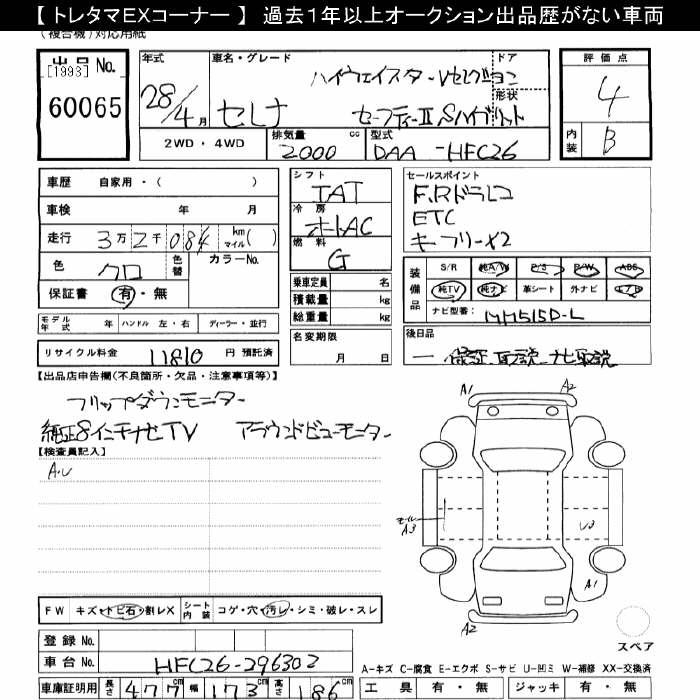 【 トレタマEXコーナー 】 過去1年以上オークション出品歴がない車両
(複合機)対応用紙
出品 No.
[1993]
60065
年式
28/4月
車名・グレード
ハイウェイスターVセレクション
セレナ セーフティーII Sハイブリット
ドア
形状
評価点
4
内装 B
2WD ・ 4WD
排気量 2000 cc
型式 DAA -HFC26
車歴 自家用・( )
車検 年 月
走行 3万2千084 km マイル( )
色 クロ 色替 カラーNo.
保証書 有・無
シフト
IAT
冷房
オートAC
燃料
G
乗車定員 名
積載量 kg
総重量 kg
セールスポイント
F.Rドラレコ
ETC
キーフリー×2
装備品
S/R 純A/W P/S P/W ABS
純TV 純ナビ 革シート 外ナビ エアB
ナビ型番: MM515D-L
モデル年式 年 ハンドル 左・右 ディーラー・並行
リサイクル料金 11810 円 預託済
名変期限
月 日
後日品
一 保証 取説 ナビ取説
【出品店申告欄(不良箇所・欠品・注意事項等)】
フリップダウンモニター
純正8インチナビTV アラウンドビューモニター
【検査員記入】
A.U
A1 A2
モール A3
U3
A1
A2
スペア
FW キズ・トビ石・割レX シート内装 コゲ・穴・汚レ・シミ・破レ・スレ
登録 No.
車台 No. HFC26-296302
車庫証明用 長さ 477 cm 幅 173 cm 高さ 186 cm
A-キズ C-腐食 E-エクボ S-サビ U-凹ミ W-補修 XX-交換済
工具 有・無 ジャッキ 有・無